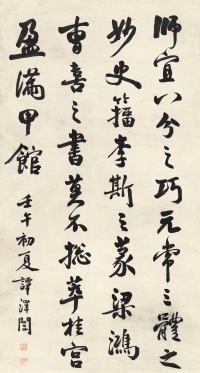 師宜八分之巧元常三體之
妙史籀李斯之篆梁鴻
曹喜之書莫不總萃桂宮
盈滿甲館
壬午初夏譚澤闓